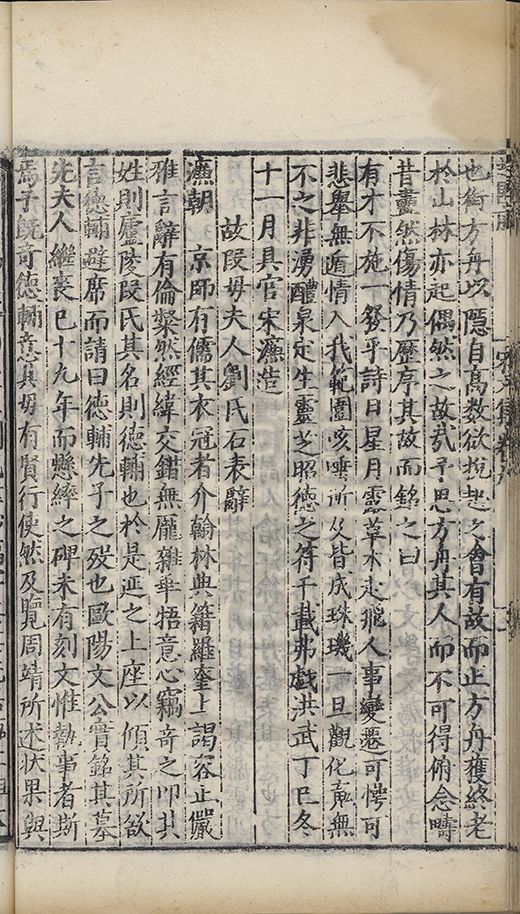 也銜方舟以隱自高数欲挽起之會有故而止方舟獲終老
於山林亦起偶然之故㢤予思方舟其人而不可得俯念疇
昔盡然傷情乃歷序其故而銘之曰
有才不施一發乎詩日星月露草木走飛人事變遷可愕可
悲舉無遁情入我範圍咳唾所及皆成珠璣一旦觀化奄無
不之非湧醴泉定生靈芝昭德之符千載弗戲洪武丁巳冬
十一月具官宋濂造
故段母夫人劉氏石表辭
濂朝京師有儒其衣冠者介翰林典籍羅奎上謁容止嚴
雅言辭有倫粲然經緯交錯無龎雜舛捂意心竊奇之叩其
姓則廬陵段氏其名則德輔也於是延之上座以傾其所欲
言德輔避席而請曰德輔先子之歿也歐陽文公實銘其墓
先夫人繼喪已十九年而懸繂之碑未有刻文惟執事者斯
焉予既奇德輔意其母有賢行使然及覽周靖所述狀果與